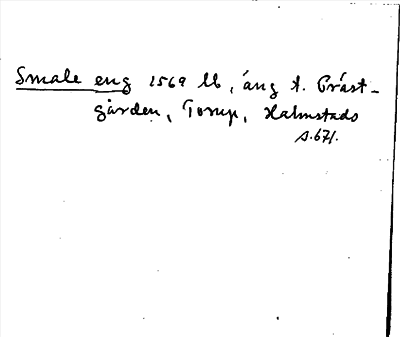 Smale eng 1569 Ub, äng t. Präst-
gården, Torup, Halmstads
s. 671.